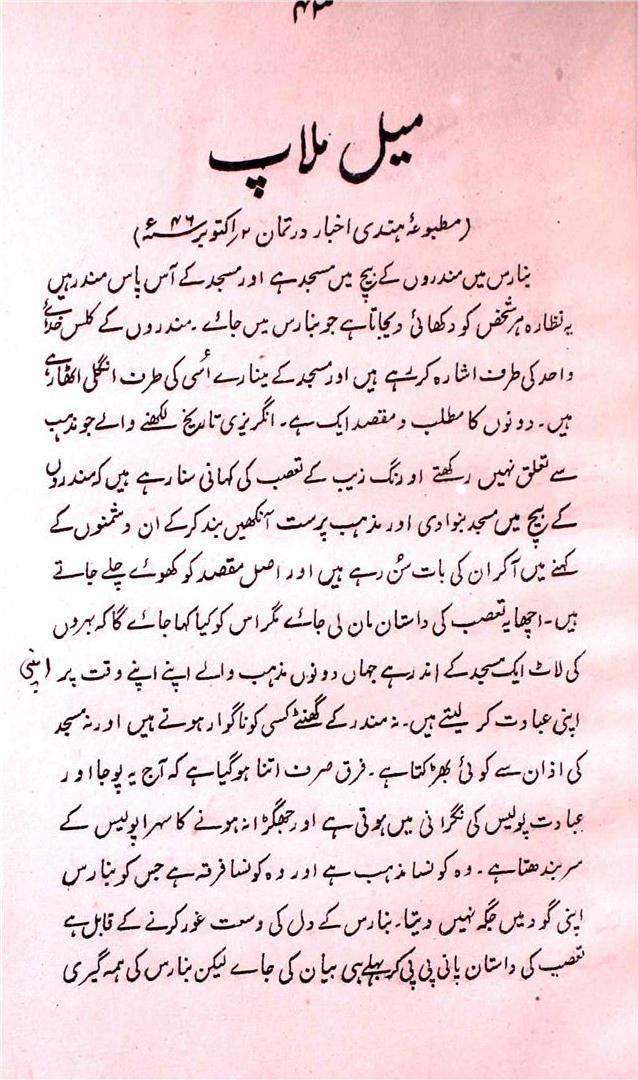 میل ملاپ
(مطبوعۂ ہندی اخبار درتمان ۲ر اکتوبر ۴۶ء)
بنارس میں مندروں کے بیچ میں مسجد ہے اور مسجد کے آس پاس مندر ہیں
یہ نظارہ ہر شخص کو دکھائی دیجاتا ہے جو بنارس میں جائے۔ مندروں کے کلس خدائے
واحد کی طرف اشارہ کر رہے ہیں اور مسجد کے مینارے اُسی کی طرف انگلی اٹھا رہے
ہیں۔ دونوں کا مطلب و مقصد ایک ہے۔ انگریزی تاریخ لکھنے والے جو مذہب
سے تعلق نہیں رکھتے اورنگ زیب کے تعصب کی کہانی سنا رہے ہیں کہ مندروں
کے بیچ میں مسجد بنوا دی اور مذہب پرست آنکھیں بند کر کے ان دشمنوں کے
کہنے میں آکر ان کی بات سُن رہے ہیں اور اصل مقصد کو کھوئے چلے جاتے
ہیں۔ اچھا یہ تعصب کی داستان مان لی جائے مگر اس کو کیا کہا جائے گا کہ بہروں
کی لاٹ ایک مسجد کے اندر ہے جہاں دونوں مذہب والے اپنے اپنے وقت پر (اپنی)
اپنی عبادت کر لیتے ہیں۔ نہ مندر کے گھنٹے کسی کو ناگوار ہوتے ہیں اور نہ مسجد
کی اذان سے کوئی بھڑکتا ہے۔ فرق صرف اتنا ہو گیا ہے کہ آج یہ پوجا اور
عبادت پولیس کی نگرانی میں ہوتی ہے اور جھگڑا نہ ہونے کا سہرا پولیس کے
سر بندھتا ہے۔ وہ کونسا مذہب ہے اور وہ کونسا فرقہ ہے جس کو بنارس
اپنی گود میں جگہ نہیں دیتا۔ بنارس کے دل کی وسعت غور کرنے کے قابل ہے
تعصب کی داستان پانی پی پی کر پہلے ہی بیان کی جائے لیکن بنارس کی ہمہ گیری